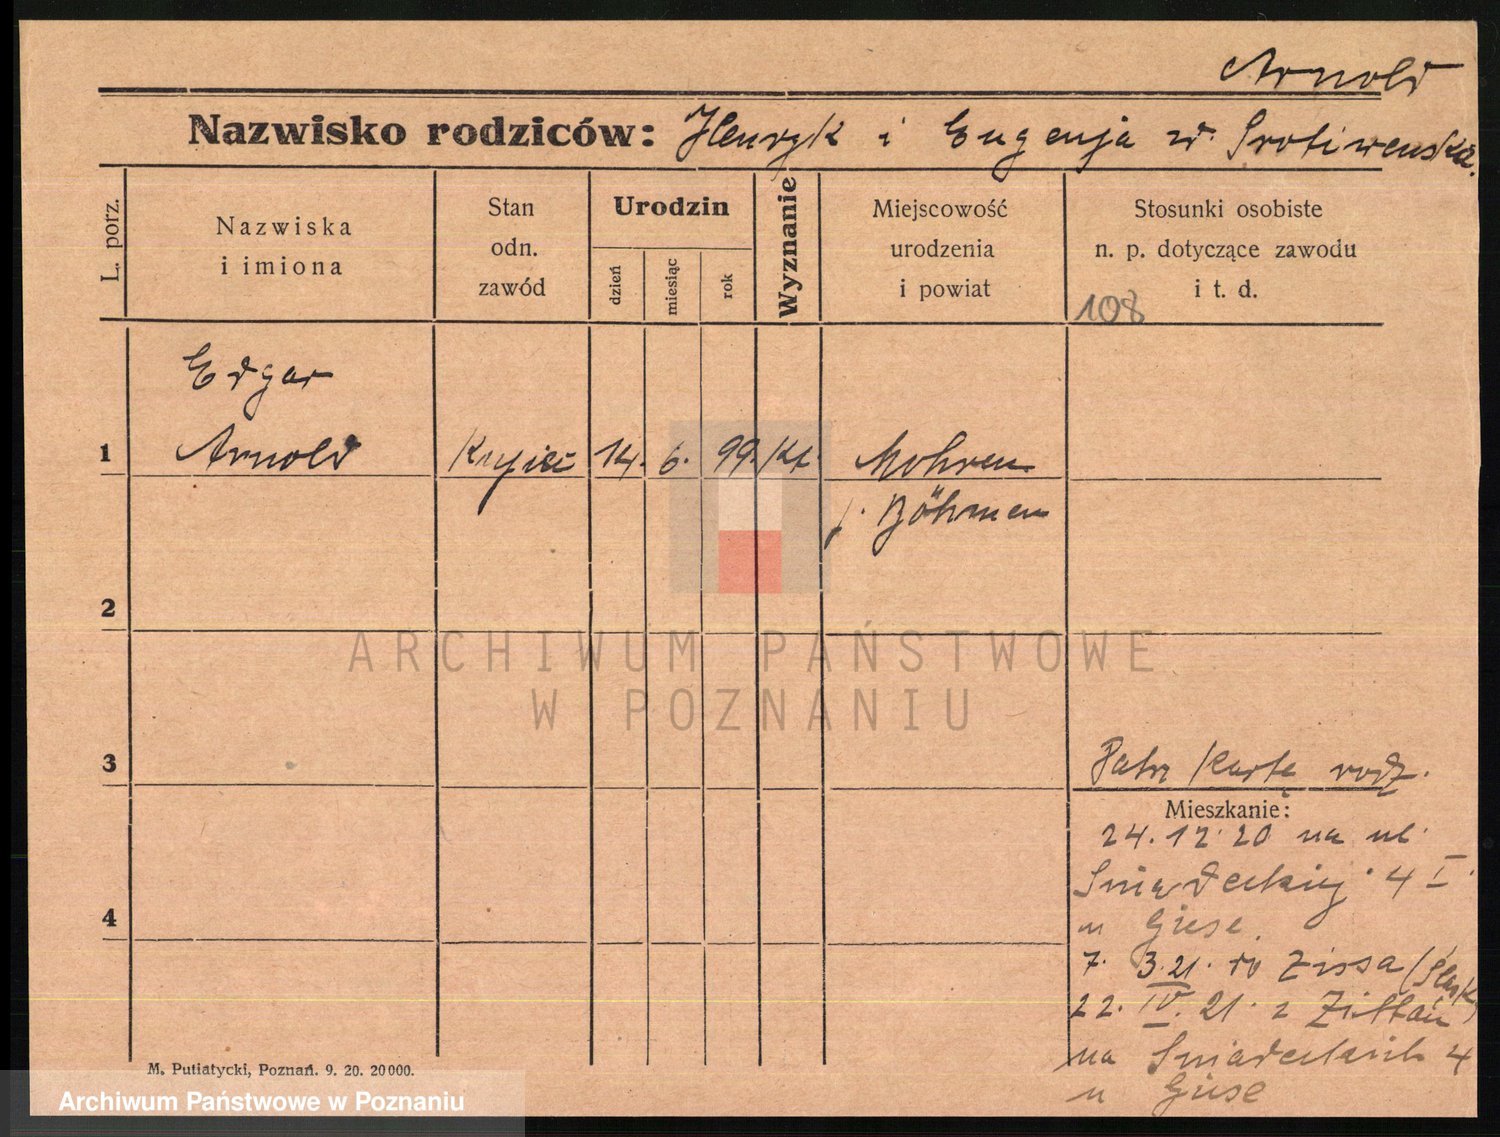 Arnold
Nazwisko rodziców: Henryk i Eugenja
L. porz.
Nazwiska
i imiona
Stan
odn.
zawód
Urodzin
dzień
miesiąc
rok
Wyznanie
Miejscowość
urodzenia
i powiat
Stosunki osobiste
n. p. dotyczące zawodu
i t. d.
108
Edgar
1 Arnold 14. 6. 99. Kt. Mohren
Böhmen
2
ARCHIWUM PAŃSTWOWE
W POZNANIU
3
Patrz Kartę rodz.
Mieszkanie:
24.12.20 na ul.
Śniadeckich 4 I.
4
u Giese.
7. 3.21. do Zissa (Śląsk)
22. IV. 21. z
na Śniadeckich 4
u Giese
M. Putiatycki, Poznań. 9. 20. 20000.
Archiwum Państwowe w Poznaniu